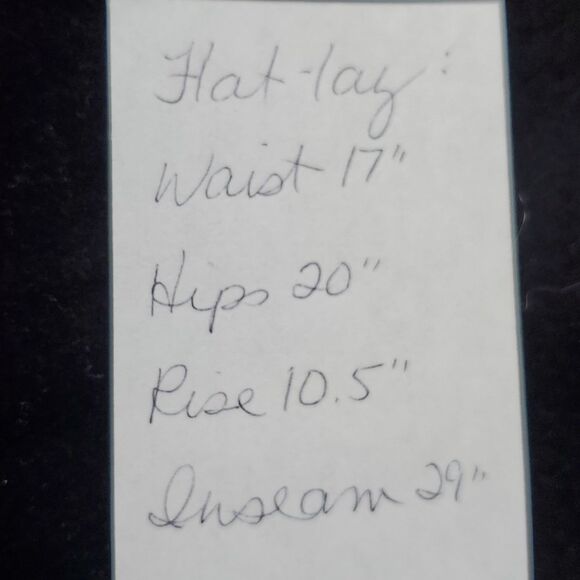 Flat-lay:
Waist 17"
Hips 20"
Rise 10.5"
Inseam 29"